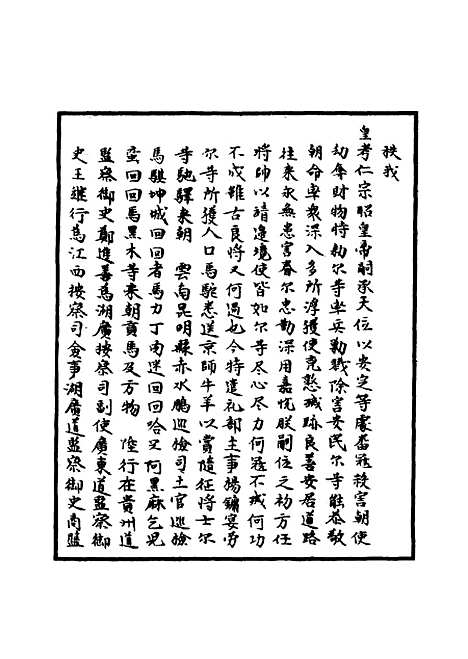 秩我
皇考仁宗昭皇帝嗣承天位以安定等處番冦殺害朝使
劫奪財物特勑尔等率兵勦戮除害安民尔等能恭敬
朝命率衆深入多所浮獲使克慜珹跡良善安居道路
徃來永無患害眷尔忠勤深用嘉恱朕嗣位之初方任
將帥以靖邊境使皆如尔等尽心尽力何冦不戒何功
不成雖古良將又何過也今特遣礼部主事楊鏞宴劳
尔等所獲人口馬駞悉送京師牛羊以賞隨征將士尔
等馳驛来朝　雲南昆明縣赤水鵬廵檢司土官廵檢
馬騏坤城回回者馬力丁南迷回回哈只阿黒麻乞児
蛮回回馬黒木等来朝貢馬及方物　陞行在貴州道
監察御史鄭進善爲湖廣按察司副使廣東道監察御
史王継行爲江西按察司僉事湖廣道監察御史商盬